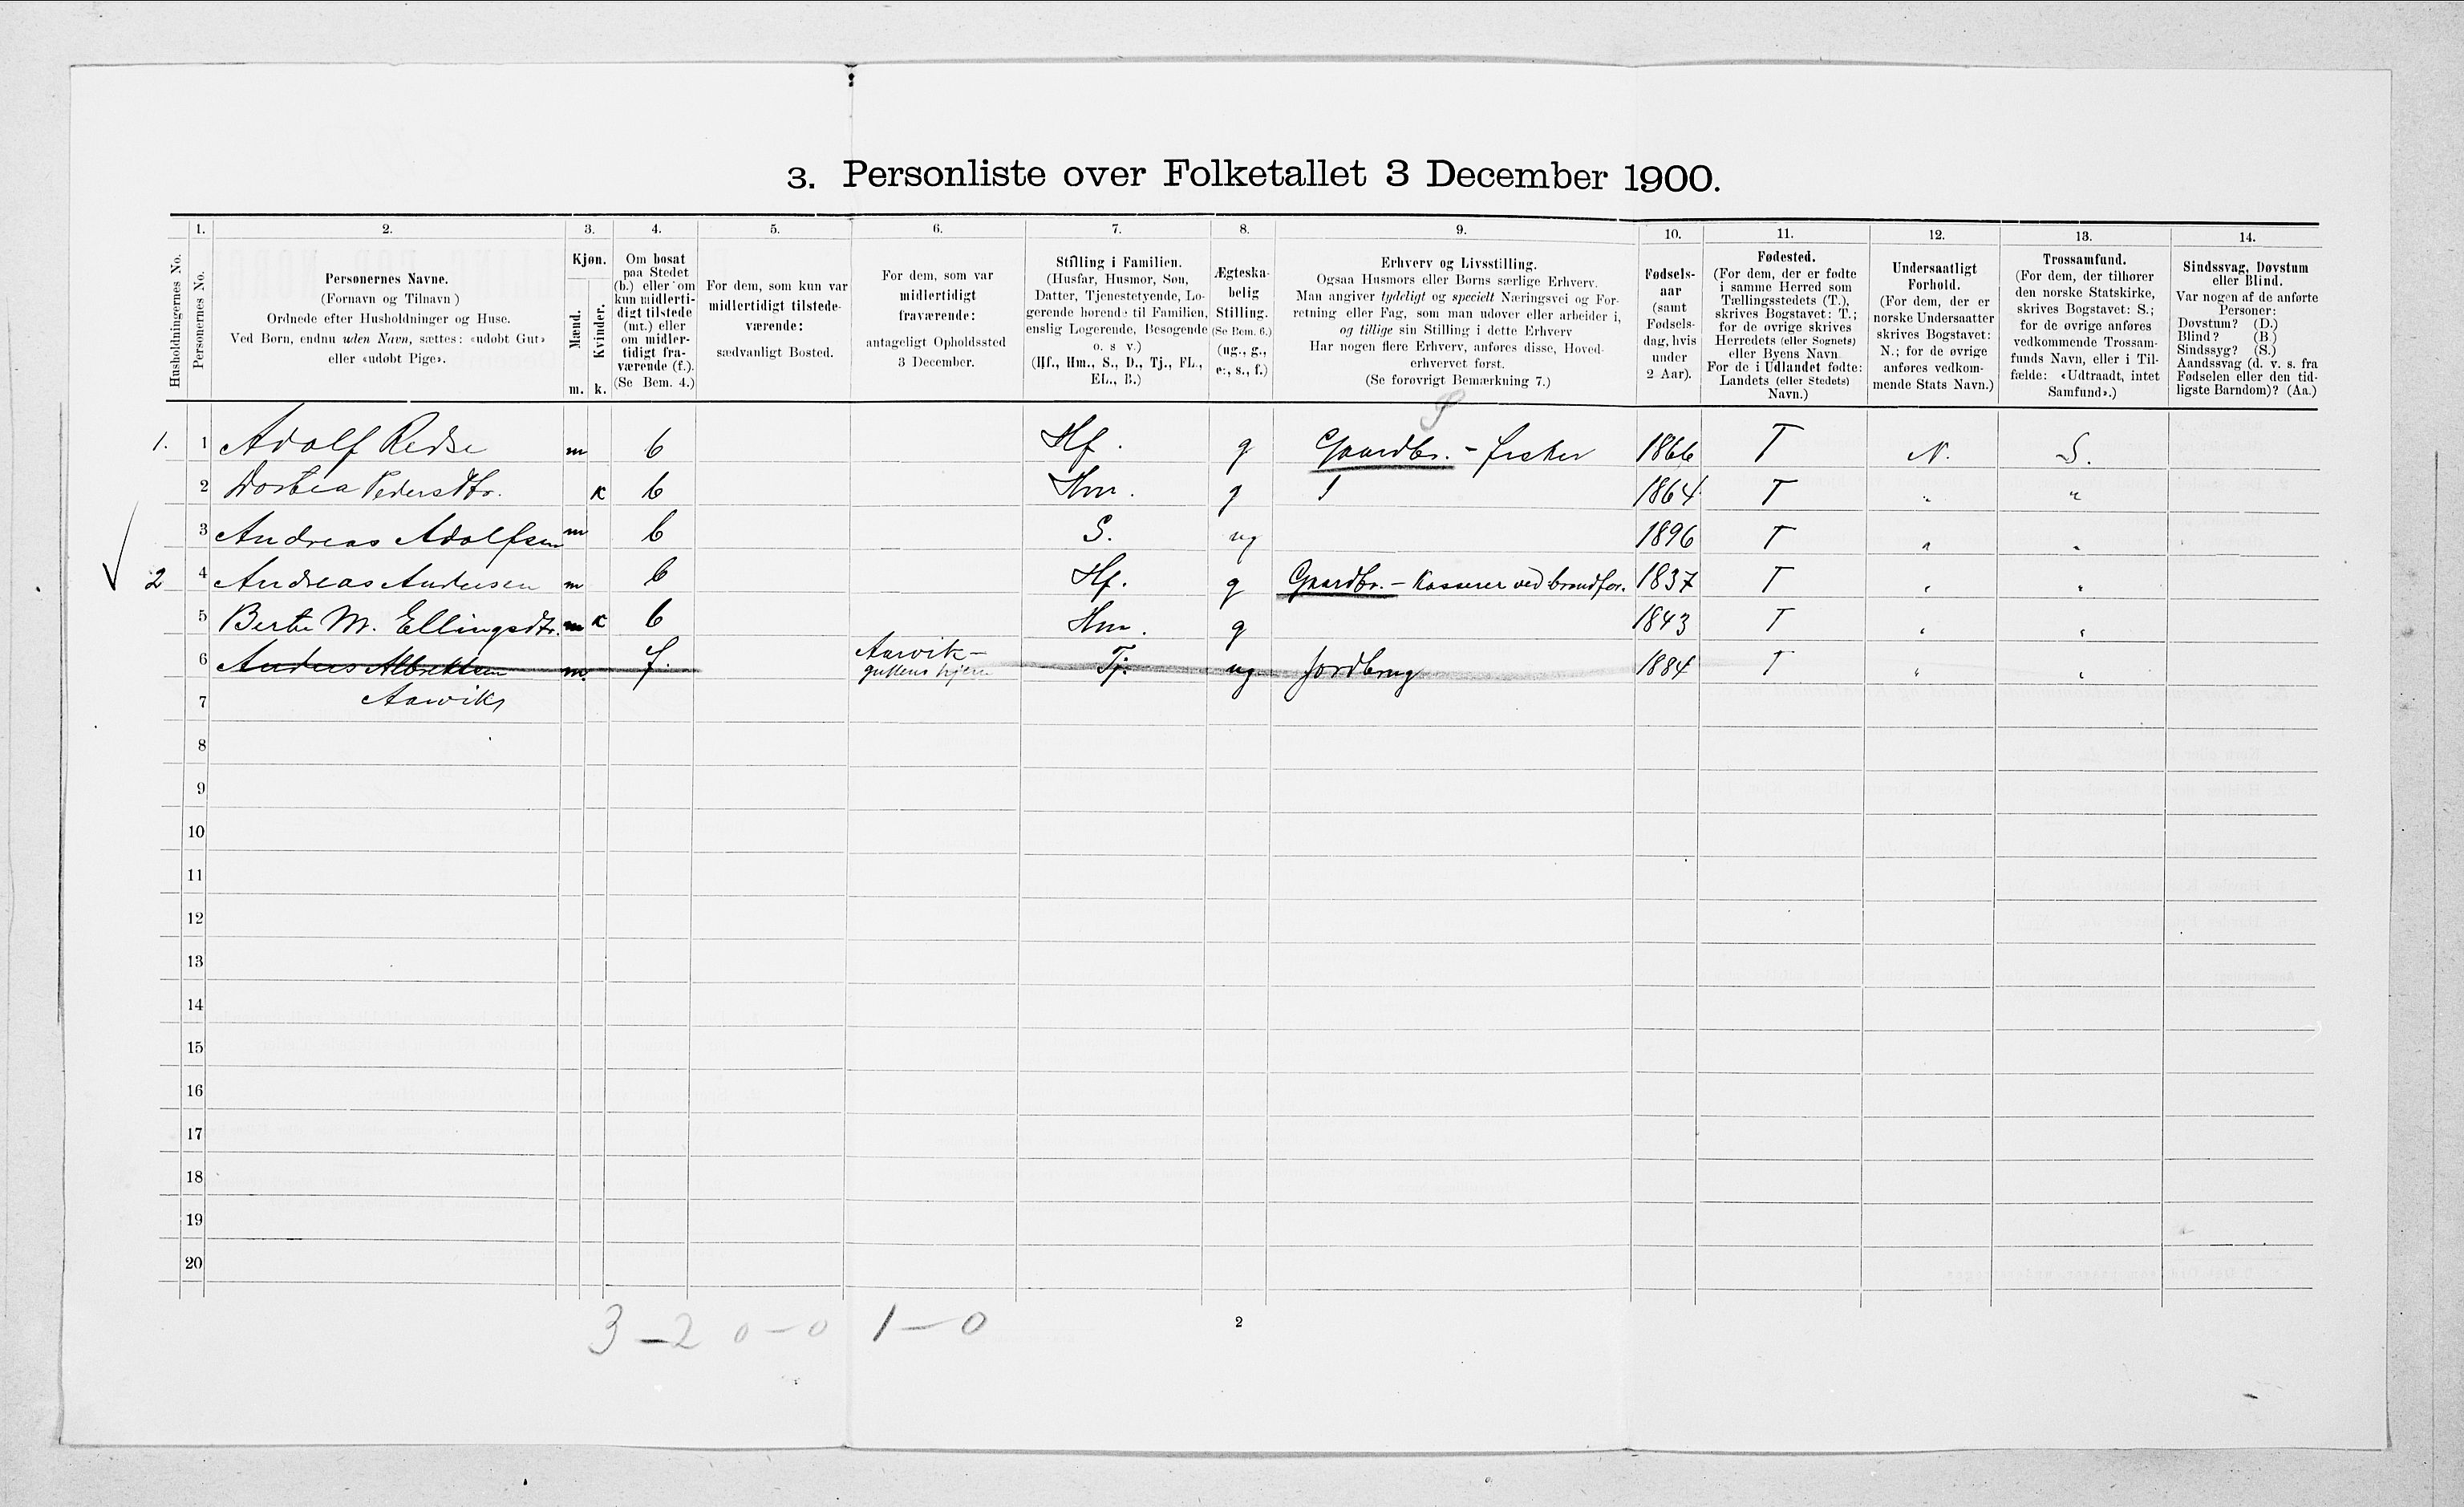 3. Personliste over Folketallet 3 December 1900.
Husholdningernes No.
1.
Personernes No.
2.
Personernes Navne.
(Fornavn og Tilnavn)
Ordnede efter Husholdninger og Huse.
Ved Børn, endnu uden Navn, sættes: «udøbt Gut»
eller «udøbt Pige».
3.
Kjøn.
Mænd.
Kvinder.
m. k.
4.
Om bosat
paa Stedet
(b.) eller om
kun midlerti-
digt tilstede
(mt.) eller
om midler-
tidigt fra-
værende (f.).
(Se Bem. 4.)
5.
For dem, som kun var
midlertidigt tilstede-
værende:
sædvanligt Bosted.
6.
For dem, som var
midlertidigt
fraværende:
antageligt Opholdssted
3 December.
7.
Stilling i Familien.
(Husfar, Husmor, Søn,
Datter, Tjenestetyende, Lo-
gerende hørende til Familien,
enslig Logerende, Besøgende
o. s. v.)
(Hf., Hm., S., D., Tj., FL.,
EL., B.)
8.
Ægteska-
belig
Stilling.
(Se Bem. 6.)
(ug., g.,
e., s., f.)
9.
Erhverv og Livsstilling.
Ogsaa Husmors eller Børns særlige Erhverv.
Man angiver tydeligt og specielt Næringsvei og For-
retning eller Fag, som man udøver eller arbeider i,
og tillige sin Stilling i dette Erhverv
Har nogen flere Erhverv, anføres disse, Hoved-
erhvervet først.
(Se forøvrigt Bemærkning 7.)
10.
Fødsels-
aar
(samt
Fødsels-
dag, hvis
under
2 Aar).
11.
Fødested.
(For dem, der er fødte
i samme Herred som
Tællingsstedets (T.),
skrives Bogstavet: T.;
for de øvrige skrives
Herredets (eller Sognets)
eller Byens Navn.
For de i Udlandet fødte:
Landets (eller Stedets)
Navn.)
12.
Undersaatligt
Forhold.
(For dem, der er
norske Undersaatter
skrives Bogstavet:
N.; for de øvrige
anføres vedkom-
mende Stats Navn.)
13.
Trossamfund.
(For dem, der tilhører
den norske Statskirke,
skrives Bogstavet: S.;
for de øvrige anføres
vedkommende Trossam-
funds Navn, eller i Til-
fælde: «Udtraadt, intet
Samfund».)
14.
Sindssvag, Døvstum
eller Blind.
Var nogen af de anførte
Personer:
Døvstum? (D.)
Blind? (B.)
Sindssyg? (S.)
Aandssvag (d. v. s. fra
Fødselen eller den tid-
ligste Barndom)? (Aa.)
1. 1 Adolf Redse m b Hf. g Gaardbr. - fisker 1866 T N. S.
2 Dortea Pedersdtr. k b Hm. g 1864 T " "
3 Andreas Adolfsen m b S. ug 1896 T " "
2 4 Andreas Andersen m b Hf. g Gaardbr. - Kasserer ved brandfor. 1837 T " "
5 Berte M. Ellingsdtr. m k b Hm. g 1843 T " "
6 Anders Albriktsen m. f. Aarvik- Tj. ug Jordbrug 1884 T " "
guttens hjem
7 Aarvik
8
9
10
11
12
13
14
15
16
17
18
19
20
3 - 2 0 - 0 1 - 0
2